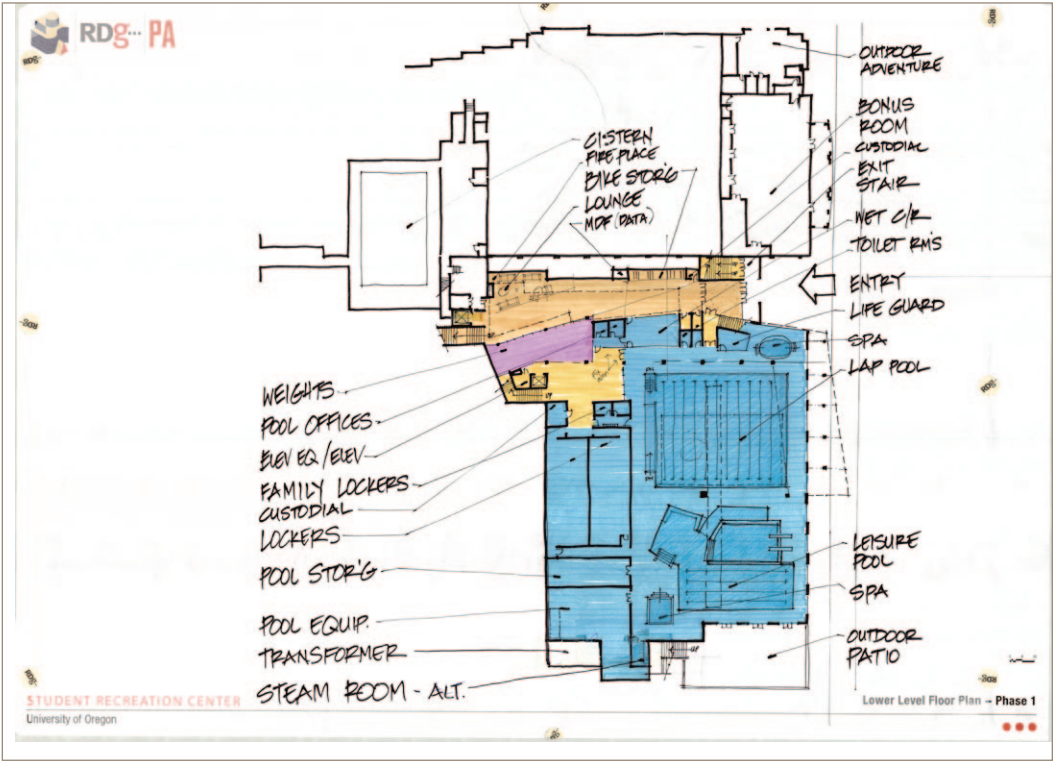 RDg... PA
OUTDOOR
ADVENTURE
BONUS
ROOM
CUSTODIAL
EXIT
STAIR
WET C/R
TOILET RM'S
ENTRY
LIFE GUARD
SPA
LAP POOL
CISTERN
FIRE PLACE
BIKE STOR'G
LOUNGE
MDF (DATA)
WEIGHTS
POOL OFFICES
ELEV EQ/ELEV
FAMILY LOCKERS
CUSTODIAL
LOCKERS
POOL STOR'G
POOL EQUIP.
TRANSFORMER
STEAM ROOM - ALT.
LEISURE
POOL
SPA
OUTDOOR
PATIO
UP
STUDENT RECREATION CENTER
University of Oregon
Lower Level Floor Plan - Phase 1
RDG-
RDG-
RDG-
RDG-